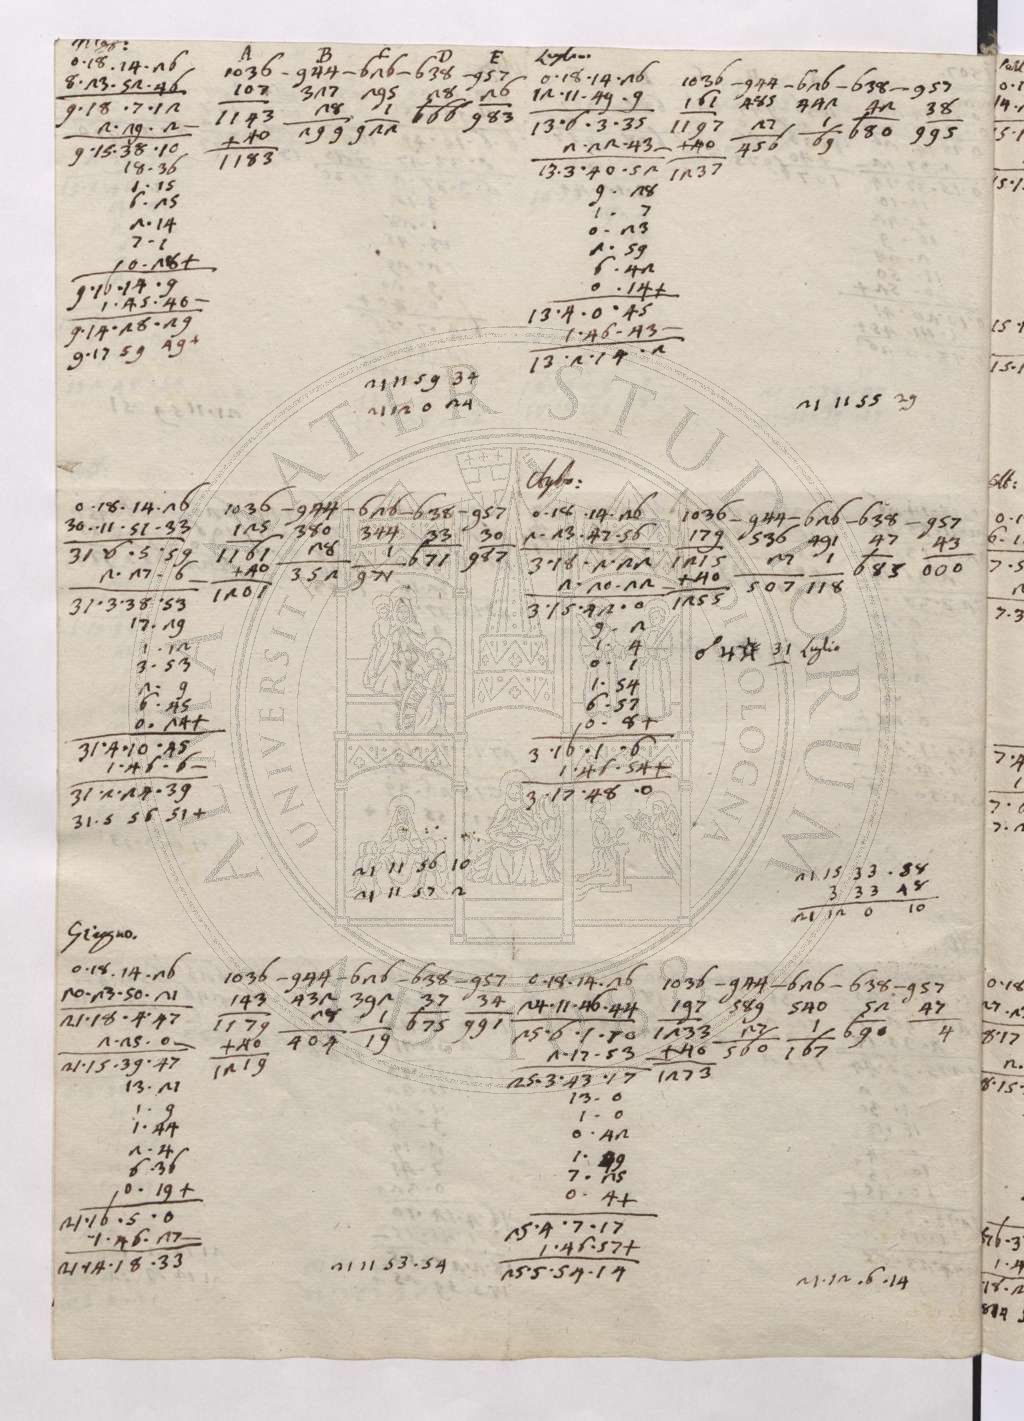 A B C D E
0·18·14·26
8·23·52·46
9·18·7·12
2·29·2—
9·15·38·10
18·36
1·15
6·25
2·14
7·1
10·28+
9·16·14·9
1·45·40—
9·14·28·29
9·17 59 49+
1036—944—626—638—957
107 327 295 28 26
1143 28 1 666 983
+40 299 922
1183
21 11 59 34
21 12 0 24
Luglio.
0·18·14·26
12·11·49·9
13·6·3·35
2·22·43—
13·3·40·52
9·28
1·7
0·23
2·59
6·42
0·14+
13·4·0·45
1·46·43—
13·2·14·2
1036—944—626—638—957
161 485 442 42 38
1197 27 1 680 995
+40 456 69
1237
21 11 55 29
0·18·14·26
30·11·51·33
31·6·5·59
2·27·6—
31·3·38·53
17·29
1·12
3·53
2·9
6·45
0·24+
31·4·10·45
1·46·6—
31·2·24·39
31·5 56 51+
1036—944—626—638—957
125 380 344 33 30
1161 28 1 671 987
+40 352 971
1201
21 11 56 10
21 11 57 2
0·18·14·26
2·23·47·56
3·18·2·22
2·20·22—
3·15·42·0
9·2
1·4
0·1
1·54
6·57
10·8+
3·16·1·6
1·46·54+
3·17·48·0
1036—944—626—638—957
179 536 491 47 43
1215 27 1 685 000
+40 507 118
1255
31 Luglio
21 15 33·58
3 33 48
21 12 0 10
Giugno.
0·18·14·26
20·23·50·21
21·18·4·47
2·25·0—
21·15·39·47
13·21
1·9
1·44
2·4
6·36
10·19+
21·16·5·0
1·46·27—
21·14·18·33
1036—944—626—638—957
143 432 392 37 34
1179 28 1 675 991
+40 404 19
1219
21 11 53·54
0·18·14·26
24·11·46·44
25·6·1·10
2·17·53
25·3·43·17
13·0
1·0
0·42
7·25
0·4+
25·4·7·17
1·46·57+
25·5·54·14
1036—944—626—638—957
197 589 540 52 47
1233 27 1 690 4
+40 560 167
1273
21·12·6·14
ALMA MATER STUDIORUM
UNIVERSITÀ DI BOLOGNA